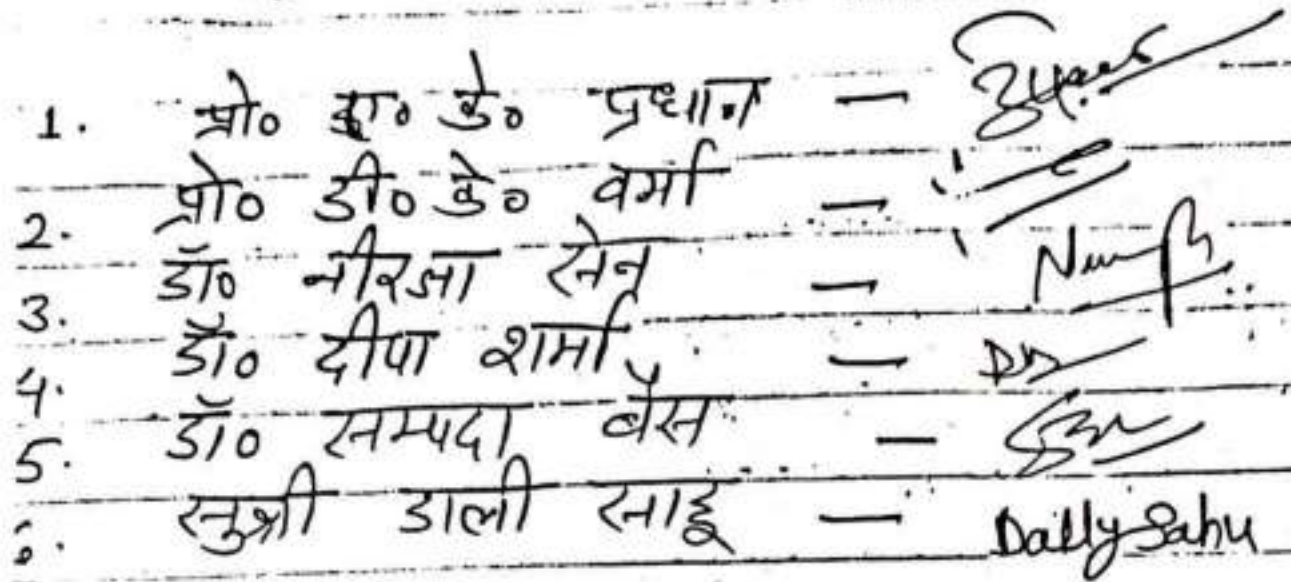 1. प्रो० के० प्रधान —
2. प्रो० डी० के० वर्मा —
3. डॉ० नीरजा सेन —
4. डॉ० दीपा शर्मा —
5. डॉ० सम्पदा बैस —
6. सुश्री डाली साहू — Dolly Sahu